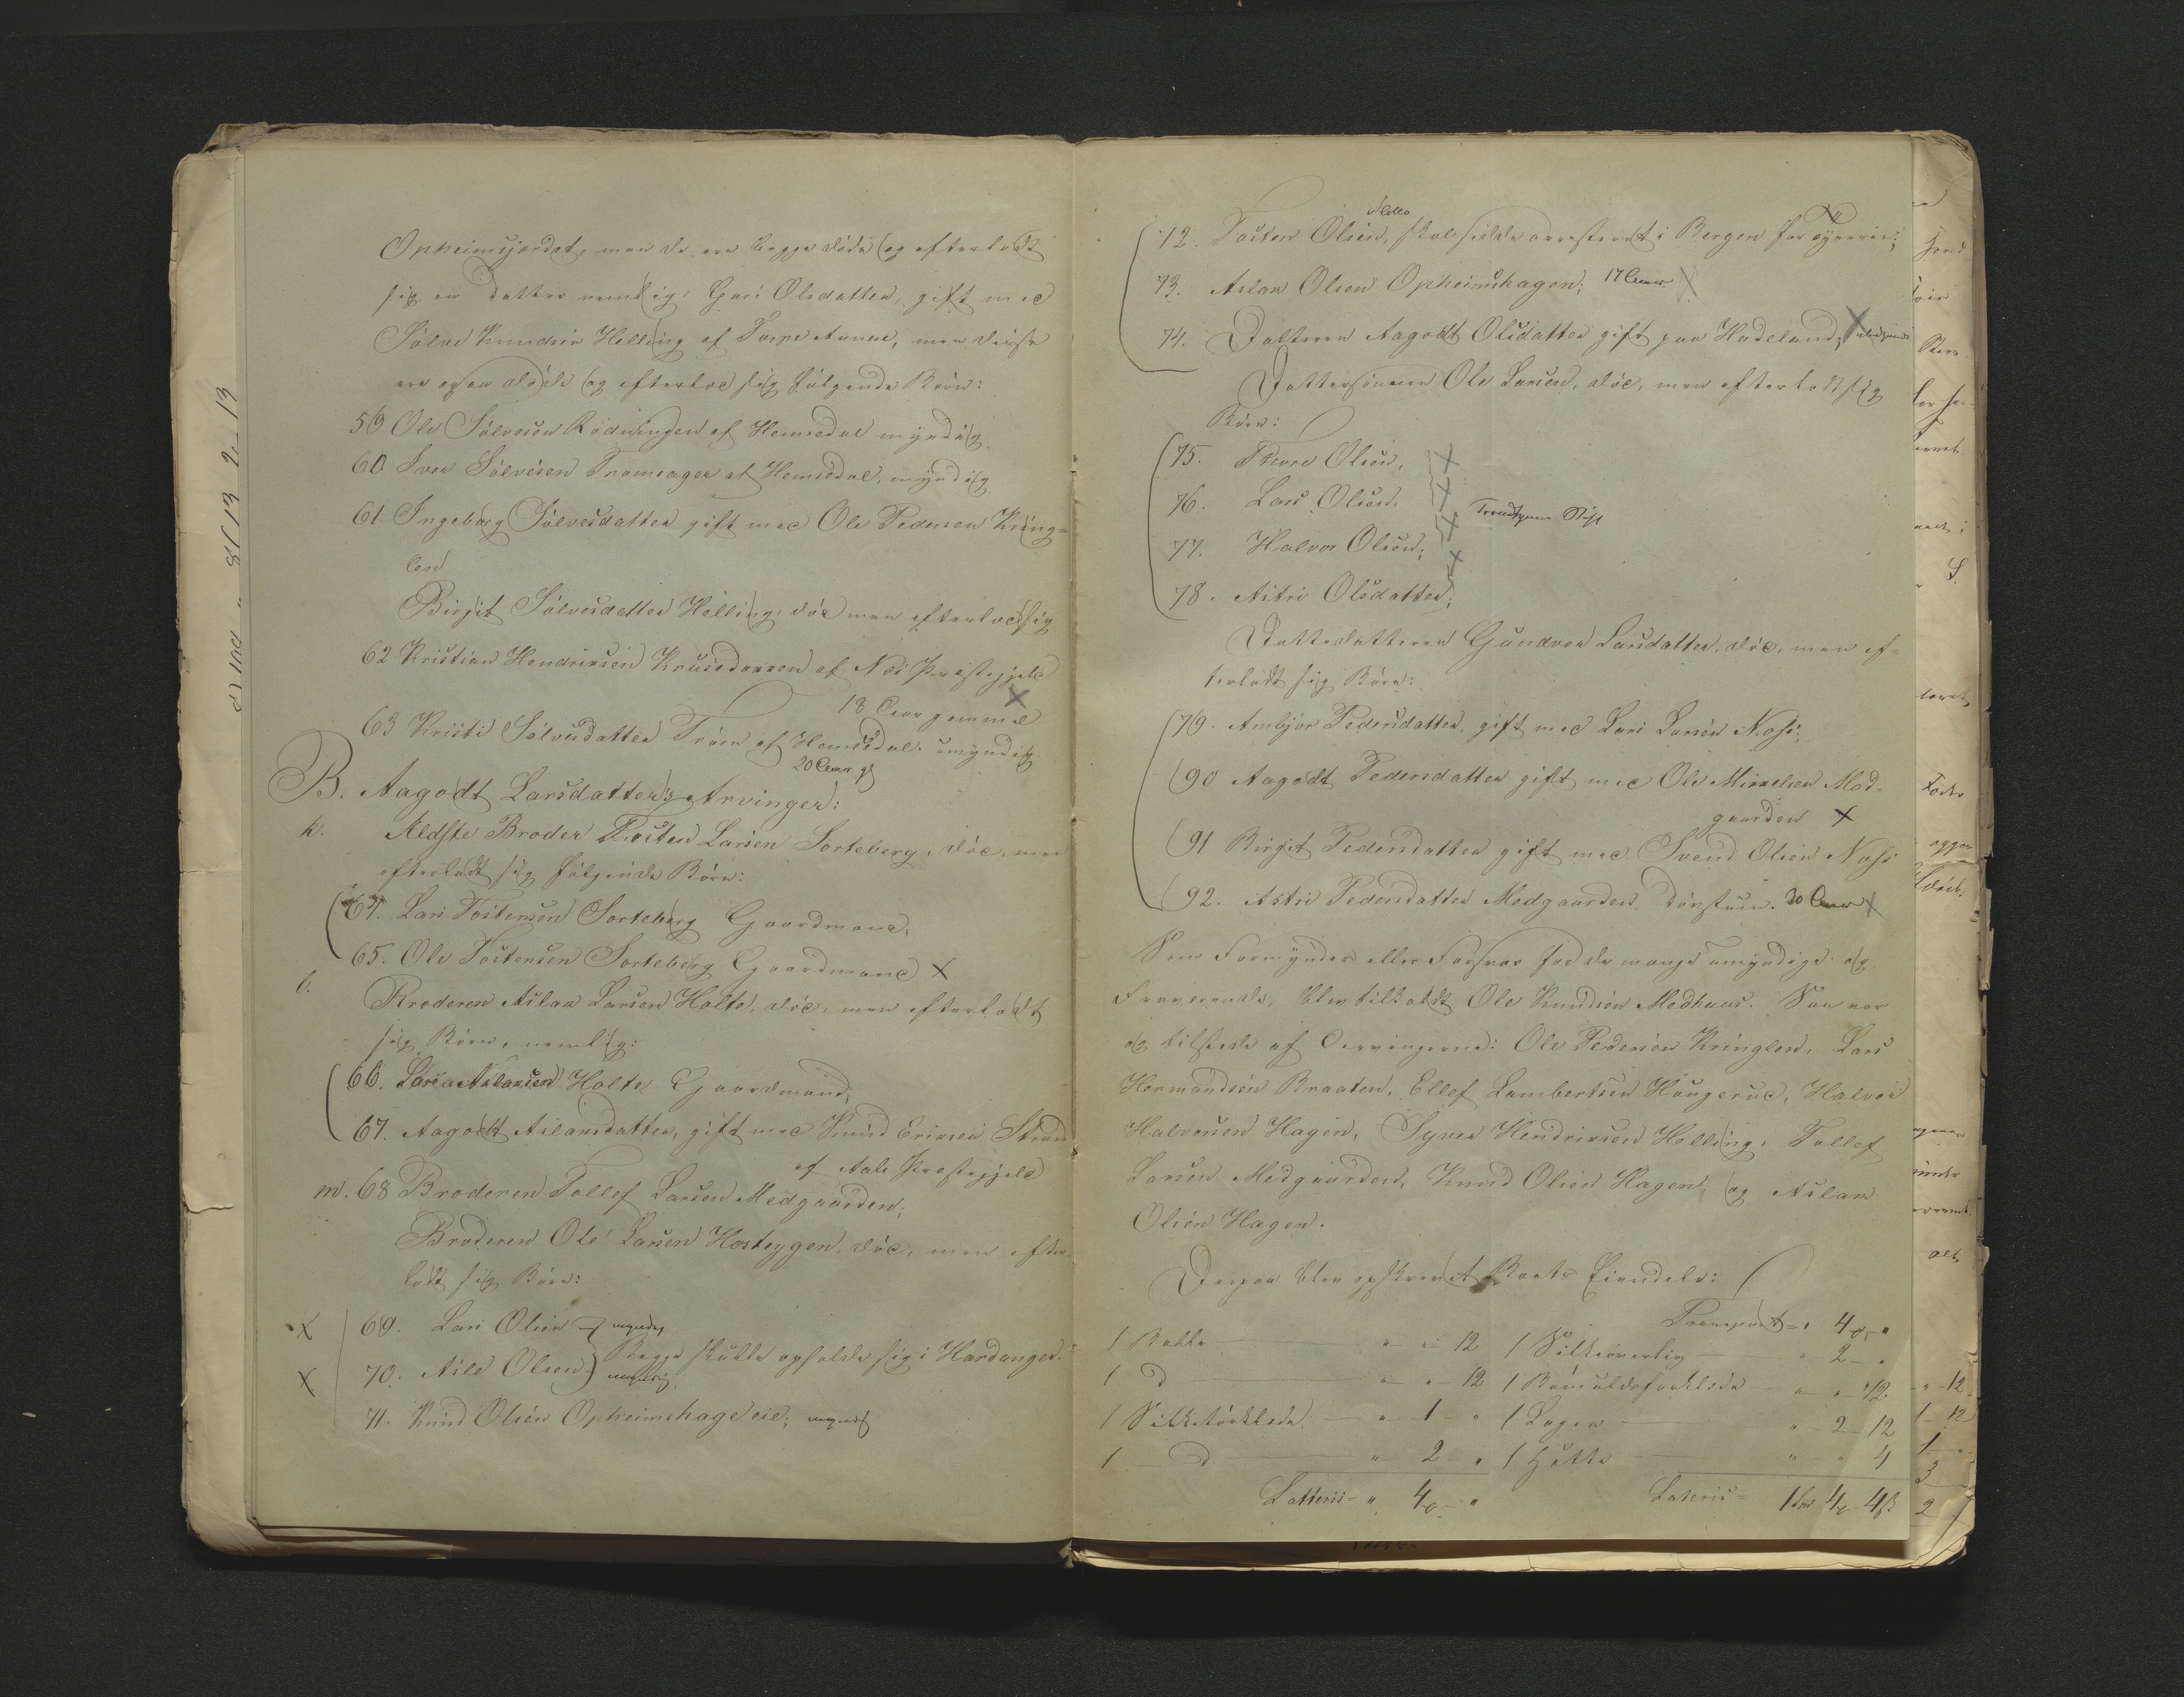 Opheimsjordet, men de ere begge döde og efterlodt
sig en datter nemlig: Guri Olsdatter, gift med
Sölve Knudsen Helling af Torpe Annex, men disse
ere ogsaa döde og efterlod sig fölgende Börn:
59 Ole Sölvesen Rödningen af Hemsedal myndig
60 Iver Sölvesen Tromsager af Hemsedal, myndig
61. Ingeborg Sölvesdatter gift med Ole Pedersen Kring=
len
Birgit Sölvesdatter Helling, död men efterlod sig
62 Kristian Hendriksen Krusedokken af Næs Præstegjeld
18 Aar gammel
63 Kristi Sölvesdatter Tröim af Hemsedal. umyndig
20 Aar gl
B. Aagodt Larsdatter's Arvinger:
k. Ældste Broder Tosten Larsen Sorteberg, död, men
efterlodt sig fölgende Börn:
64. Lars Tostensen Sorteberg Gaardmand,
65. Ole Tostensen Sorteberg Gaardmand X
l.
Broderen Aslak Larsen Holte, död, men efterlodt
sig Börn, nemlig:
66. Lars Aslaksen Holte Gaardmand;
67. Aagodt Aslaksdatter, gift med Knud Eriksen Strand
af Aals Præstegjeld
m. 68 Broderen Tollef Larsen Medgaarden;
Broderen Ole Larsen Hesteygen, död, men efter
lodt sig Börn:
X 69. Lars Olsen myndig
Begge skulle opholde sig i Hardanger.
X 70. Asle Olsen myndig
71. Knud Olsen Opheimshage eie; myndig
72. Tosten Olsen, skal sidde arresteret i Bergen for Tyverie;
73. Aslak Olsen Opheimshagen; 17 Aar X
74. Datteren Aagodt Olsdatter gift paa Hadeland; X
Dattersönnen Ole Larsen, död, men efterlodt sig
Börn:
75. Thore Olsen, X
76. Lars Olsen, X Trondhjems Stift
77. Halvor Olsen; X
78. Astri Olsdatter; X
Datterdatteren Gundvor Larsdatter, död, men ef=
terlodt sig Börn:
79. Ambjör Pedersdatter, gift med Lars Larsen Noss;
90 Aagodt Pedersdatter gift med Ole Mikkelsen Med=
gaarden X
91 Birgit Pedersdatter gift med Svend Olsen Noss
92. Astri Pedersdatter Medgaarden. Dövstum. 30 Aar X
Som Formynder eller Forsvar for de mange umyndige og
Fraværende, blev tilkaldt Ole Knudsen Medhuus. Saa var
og tilstede af Arvingerne: Ole Pedersen Kringlen, Lars
Hermandsen Braaten, Ellef Lambertsen Haugerud, Halvor
Halvorsen Hagen, Syver Hendriksen Helling, Tollef
Larsen Medgaarden, Knud Olsen Hagen, og Aslak
Olsen Hagen.
Derpaa blev opskrevet Boets Eiendele:
Transport = " 4 - "
1 Kakke " - " - 12 1 Silkeoverliv " 2 - "
1 d " - " - 12 1 Bomuldstörklæde " - " - 12
1 Silketörklæde " - 1 - " 1 Lagen " - 2 - 12
1 d " - 2 - " 1 Hætte " - " - 4
Latteris = " 4 - " Lateris = 1 4 4 ß